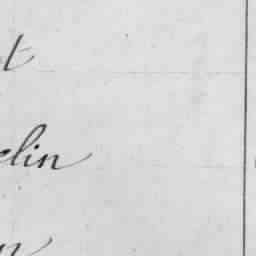 t
elin
n